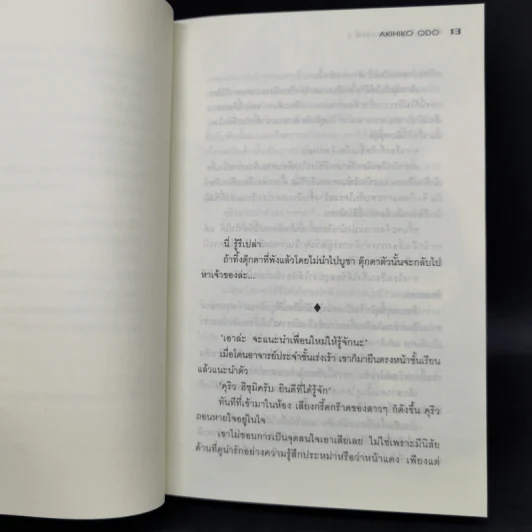 AKIHIKO ODO 13
นี่ รู้รึเปล่า
ถ้าทิ้งตุ๊กตาที่พังแล้วโดยไม่นำไปบูชา ตุ๊กตาตัวนั้นจะกลับไป
หาเจ้าของล่ะ...
'เอาล่ะ จะแนะนำเพื่อนใหม่ให้รู้จักนะ'
เมื่อโดนอาจารย์ประจำชั้นเร่งเร้า เขาก็มายืนตรงหน้าชั้นเรียน
แล้วแนะนำตัว
'คุริว ฮิซุมิครับ ยินดีที่ได้รู้จัก'
ทันทีที่เข้ามาในห้อง เสียงกรี๊ดกร๊าดของสาวๆ ก็ดังขึ้น คุริว
ถอนหายใจอยู่ในใจ
เขาไม่ชอบการเป็นจุดสนใจเอาเสียเลย ไม่ใช่เพราะมีนิสัย
ด้านที่ดูน่ารักอย่างความรู้สึกประหม่าหรือว่าหน้าแดง เพียงแต่